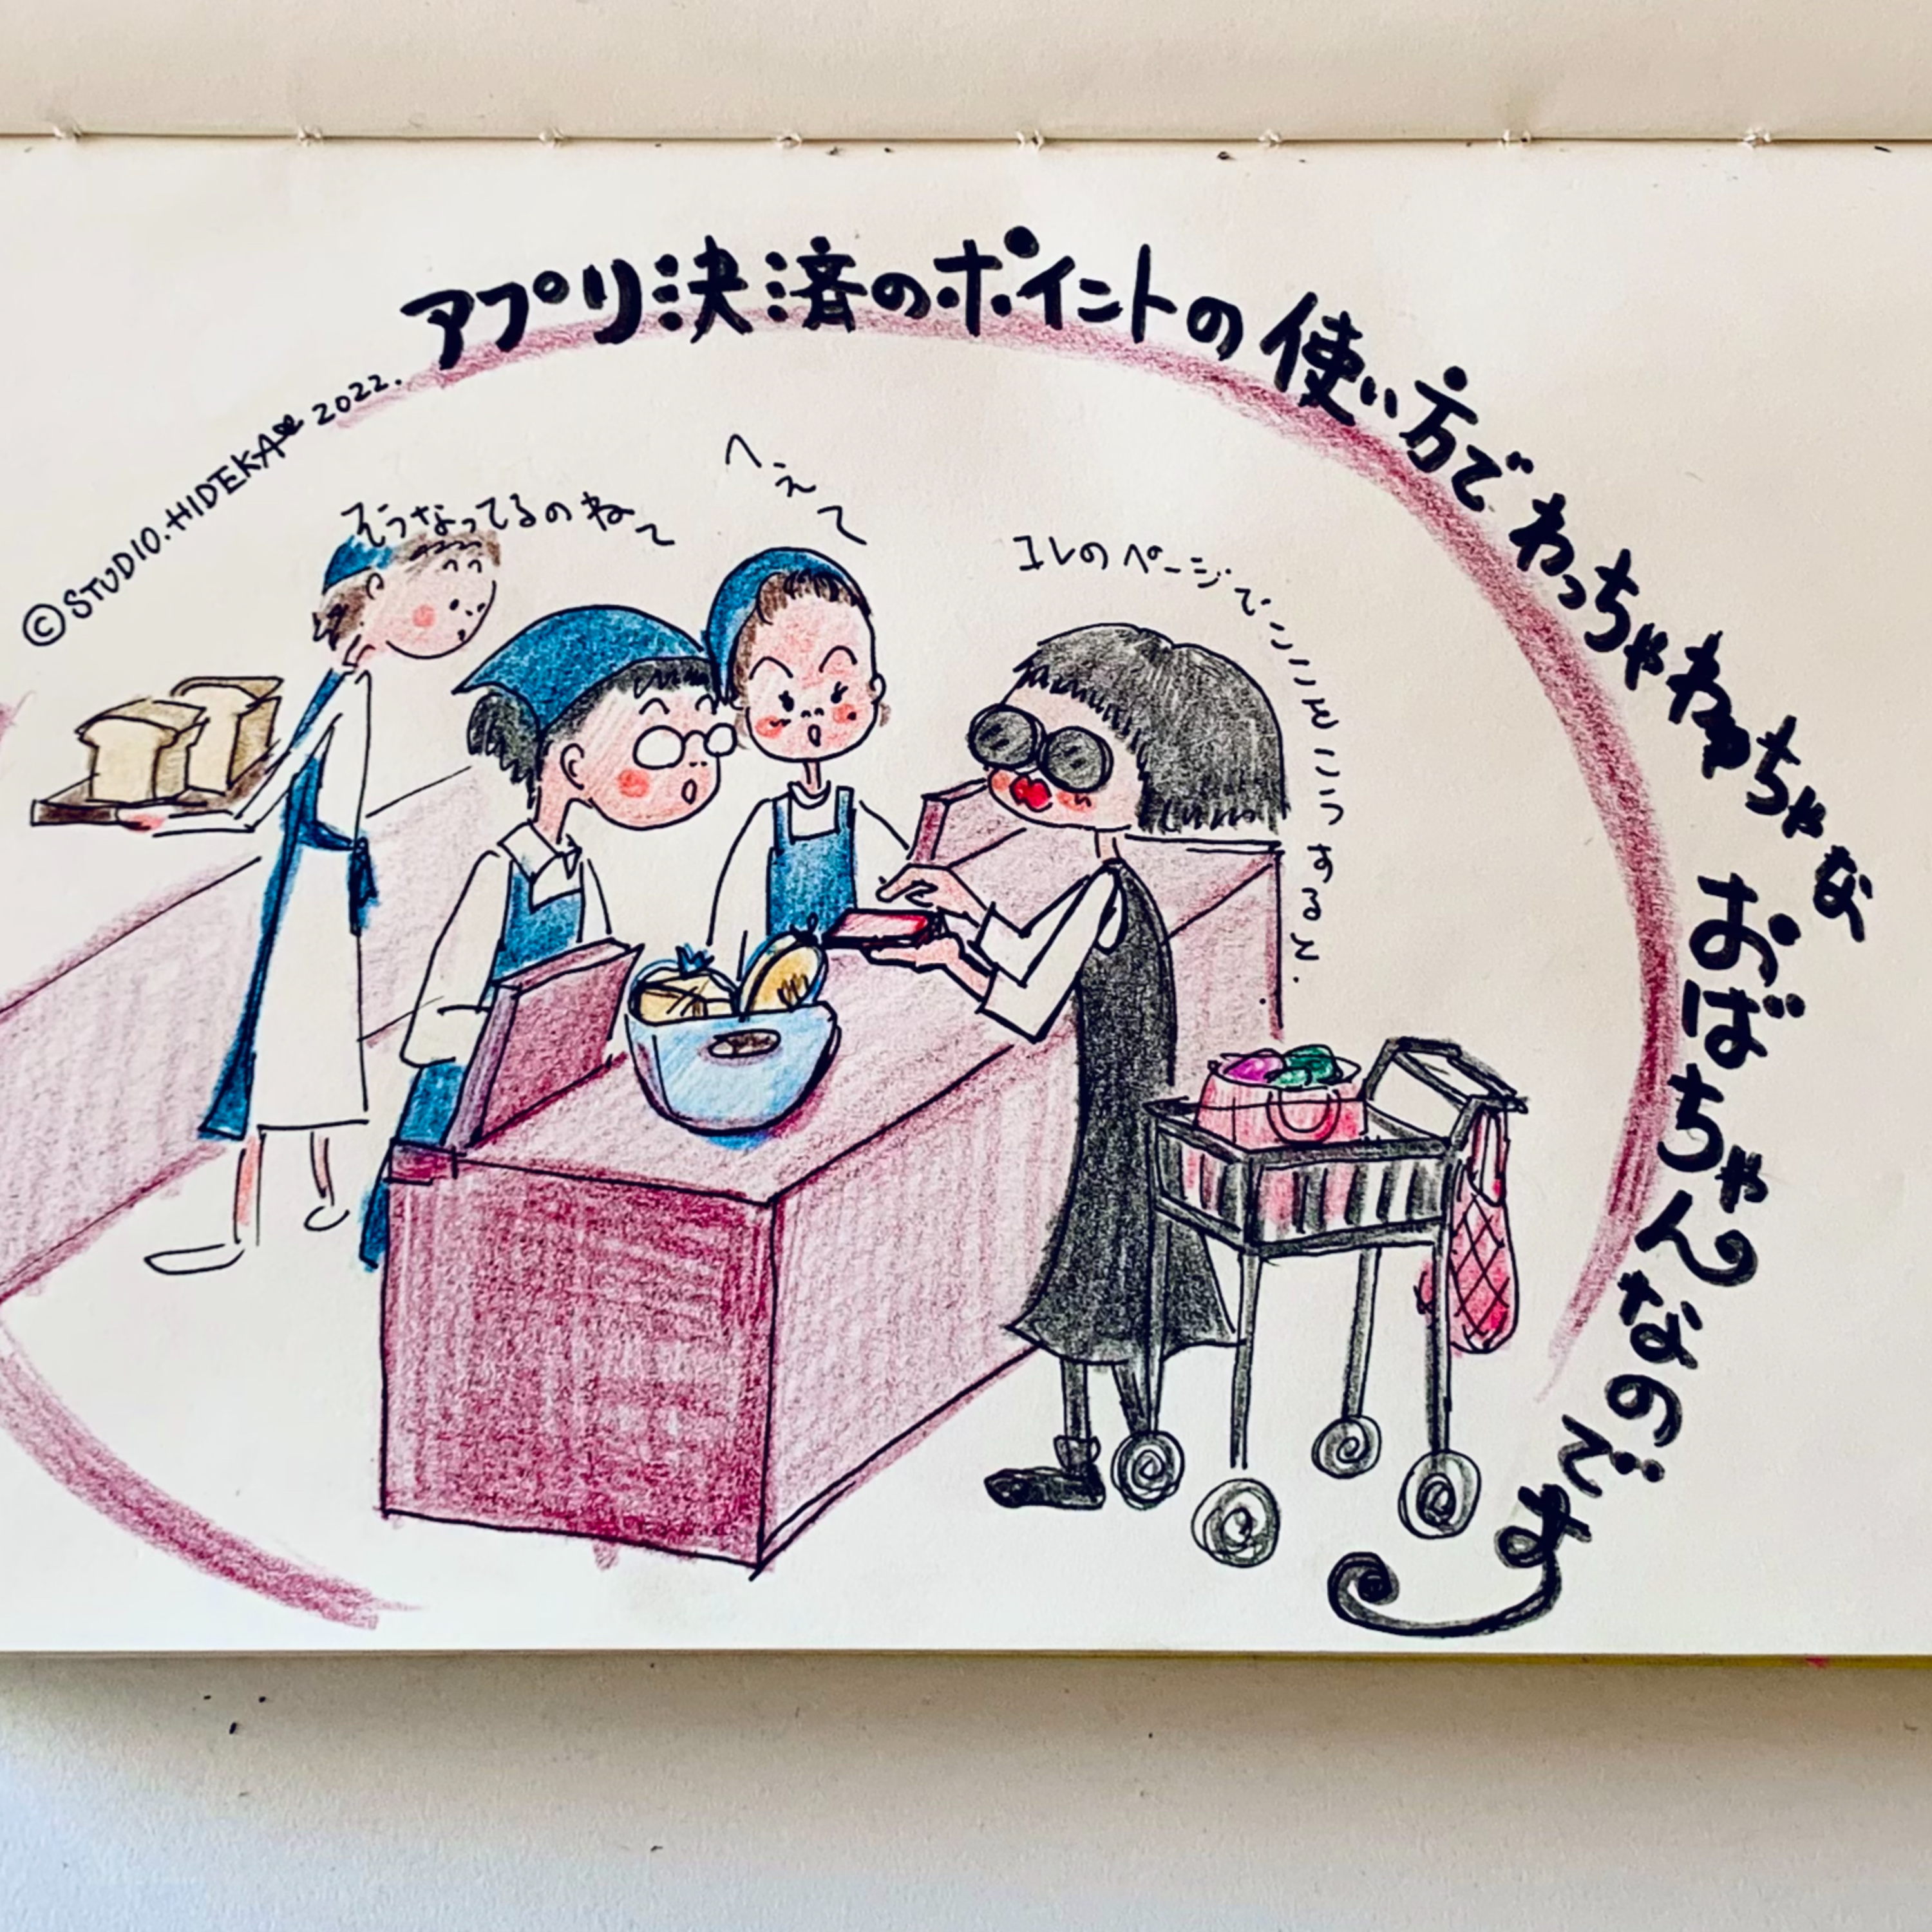 アプリ決済のポイントの使い方でわっちゃわっちゃな
おばちゃんなのです
©STUDIO.HIDEKA 2022.
そうなってるのね〜
へぇ〜
コレのページでここをこうすると.